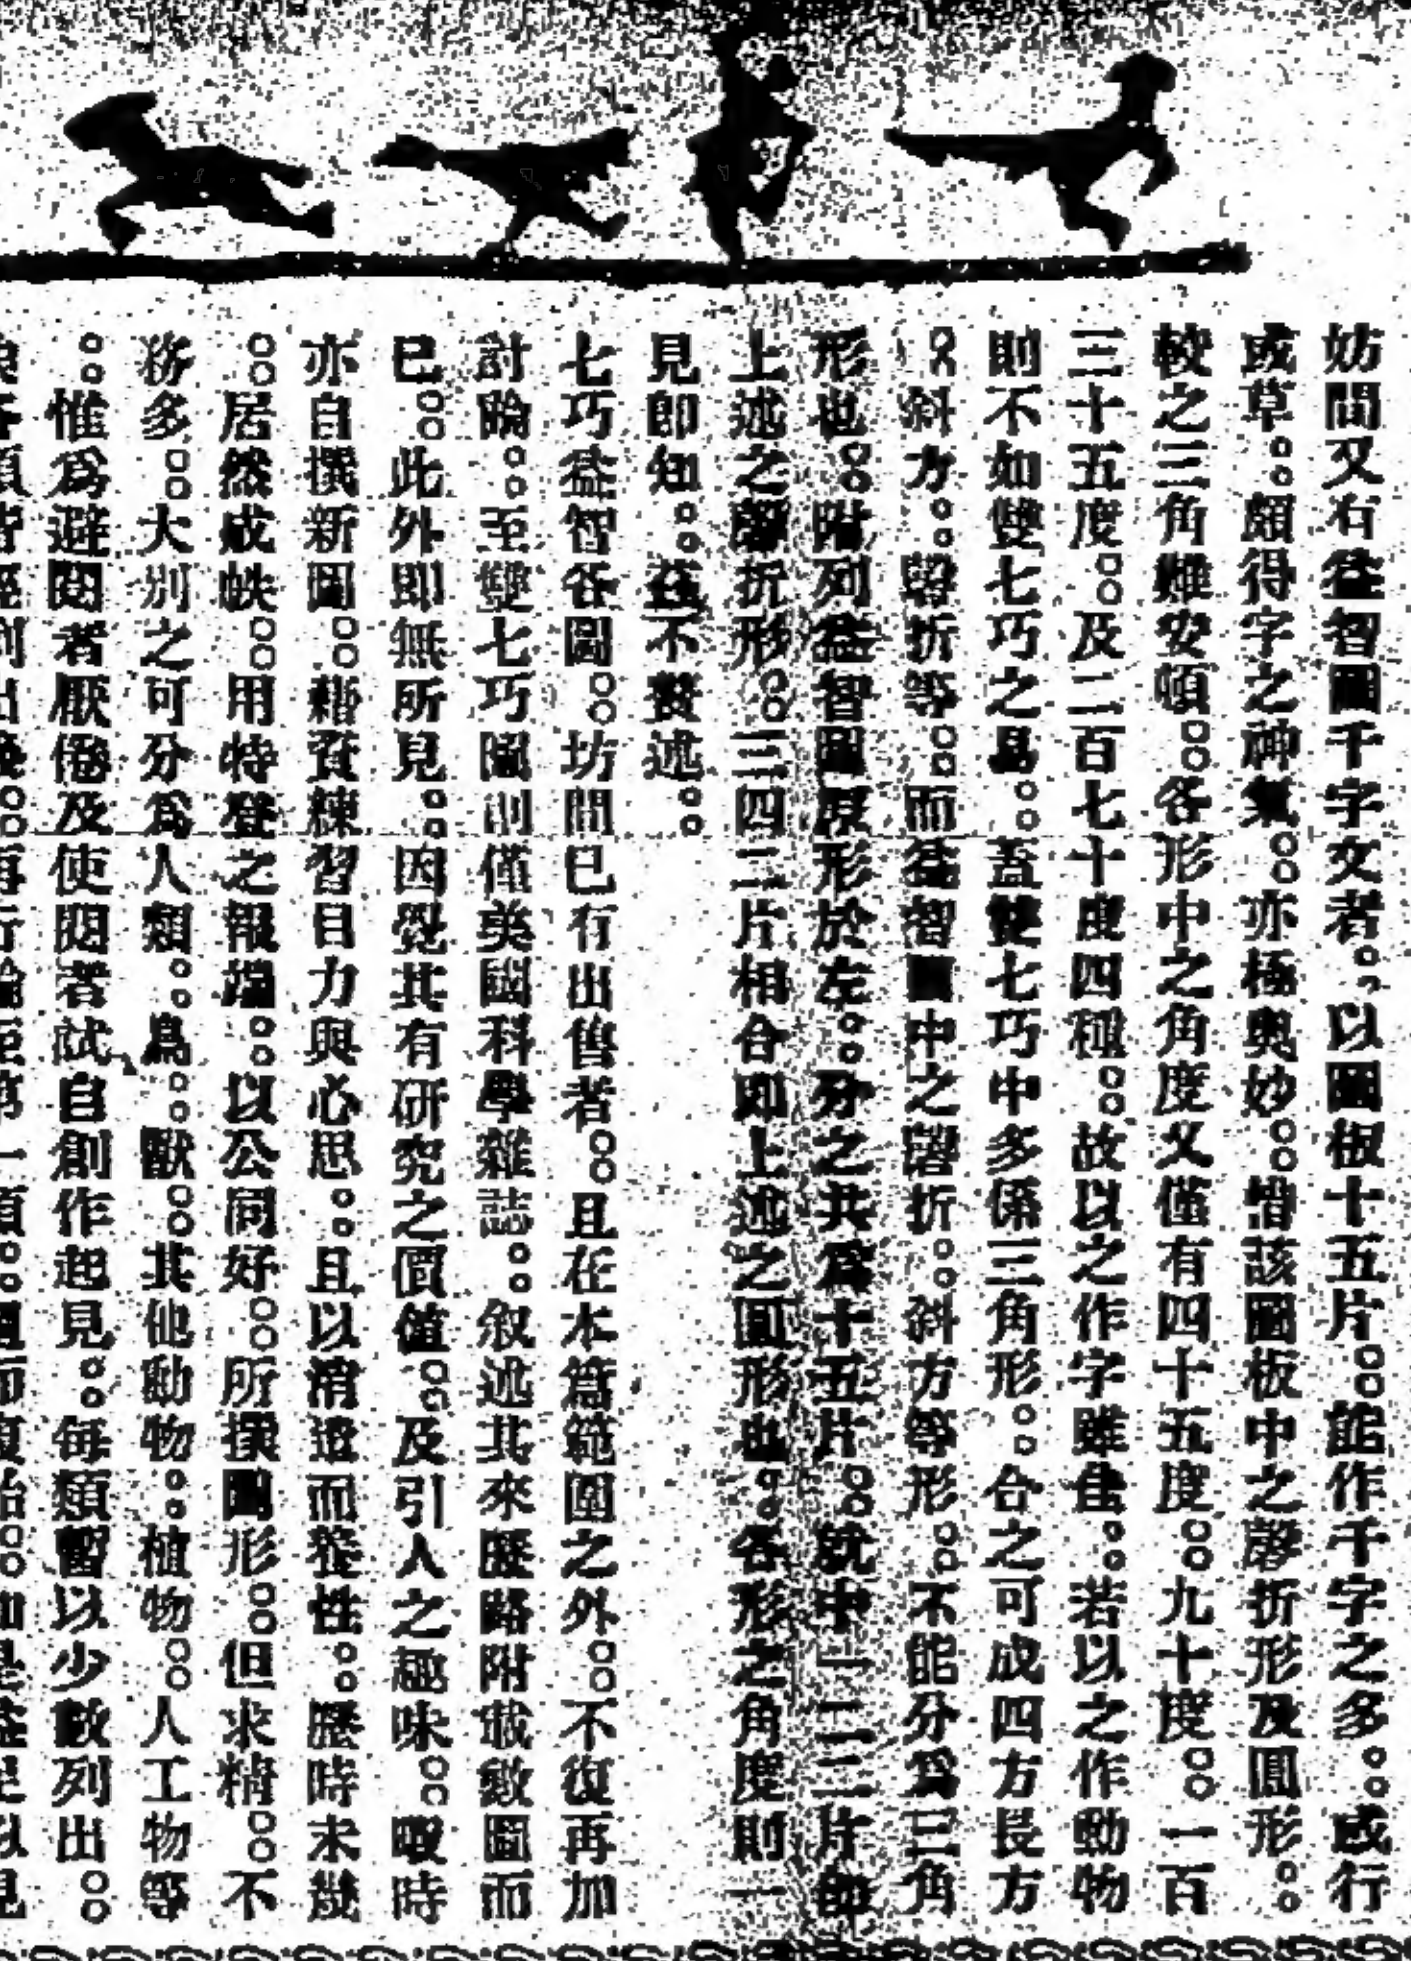 妨間又有益智圖千字文者。以圖板十五片。能作千字之多。或行
或草。頗得字之神氣。亦極奧妙。惜該圖板中之磬折形及圓形。
較之三角難安頓。各形中之角度又僅有四十五度。九十度。一百
三十五度。及二百七十度四種。故以之作字雖佳。若以之作動物
則不如雙七巧之易。蓋雙七巧中多係三角形。合之可成四方長方
。斜方。磬折等。而益智圖中之磬折。斜方等形。不能分爲三角
形也。附列益智圖原形於左。分之共爲十五片。就中一二三片卽
上述之磬折形。三四二片相合即上述之圓形也。各形之角度則一
見卽知。茲不贅述。
七巧益智各圖。坊間已有出售者。且在本篇範圍之外。不復再加
討論。至雙七巧圖則僅英國科學雜誌。叙述其來歷畧附載數圖而
已。此外即無所見。因覺其有研究之價值。及引人之趣味。暇時
亦自撰新圖。藉資練習目力與心思。且以消遣而養性。歷時未幾
。居然成帙。用特登之報端。以公同好。所撰圖形。但求精。不
務多。大別之可分爲人類。鳥。獸。其他動物。植物。人工物等
。惟爲避閱者厭倦及使閱者試自創作起見。每類暫以少數列出。